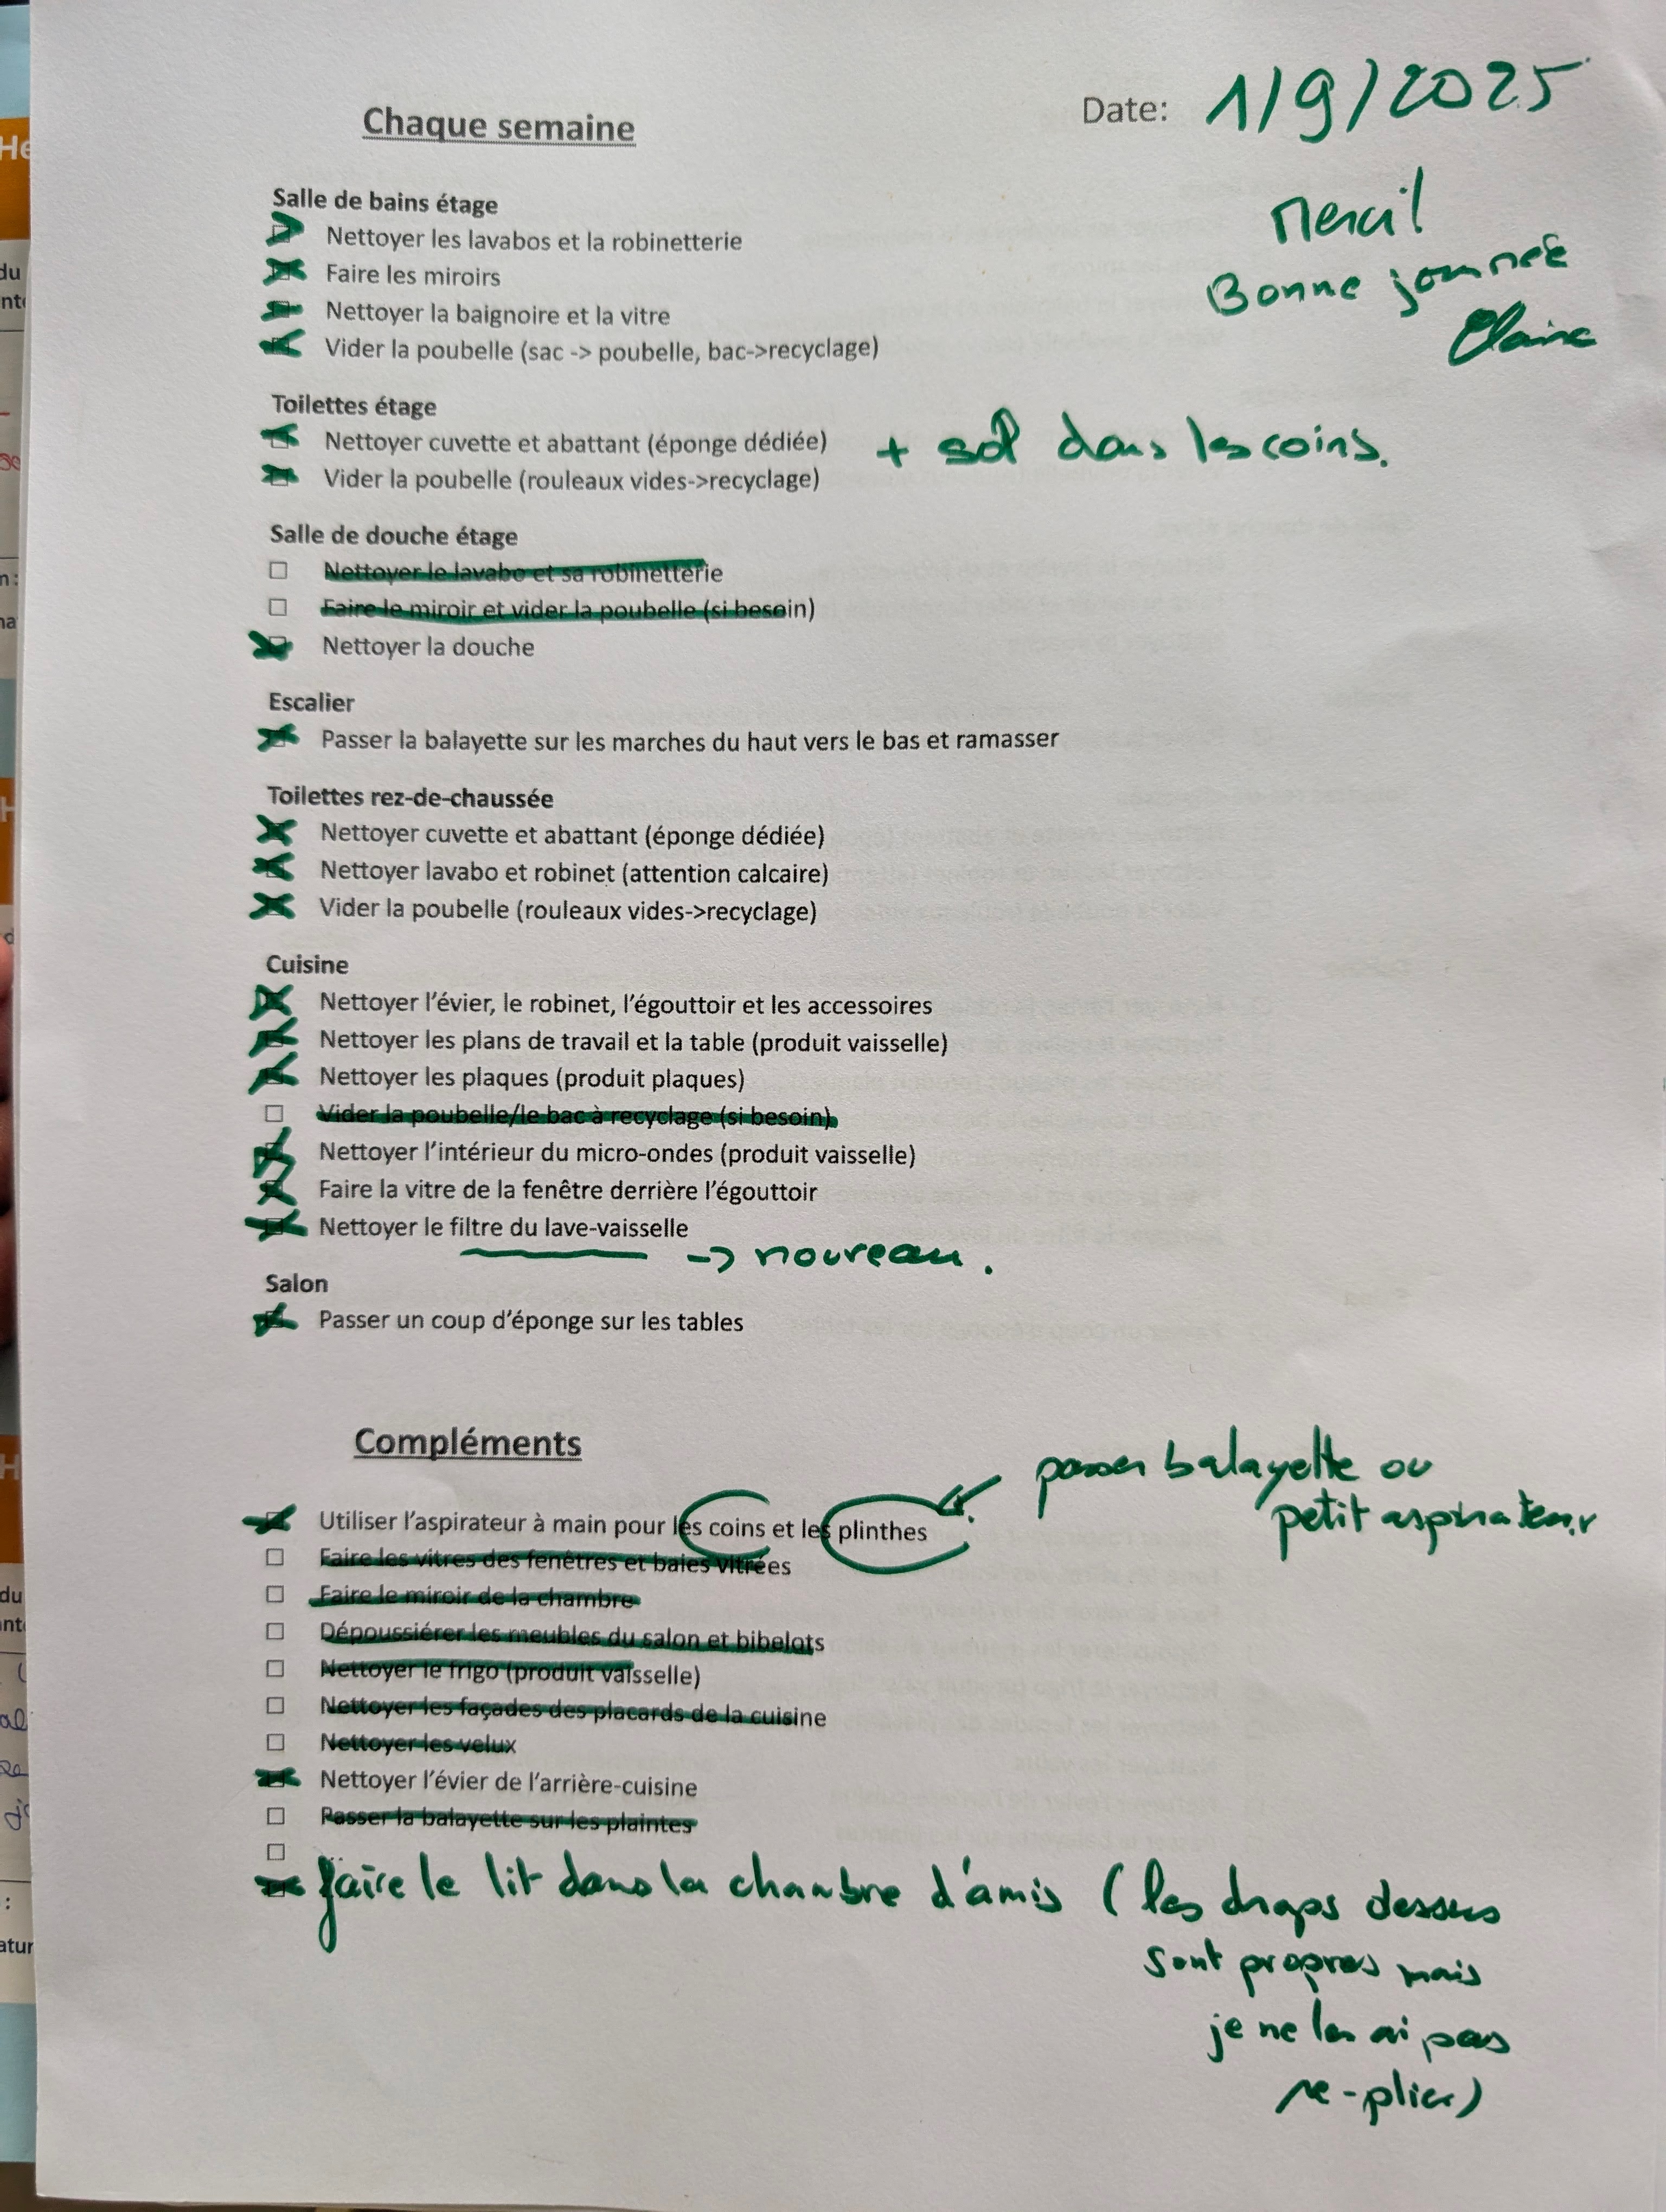 Chaque semaine
Date: 1/9/2025
Merci!
Bonne journée
Claire
Salle de bains étage
Nettoyer les lavabos et la robinetterie
Faire les miroirs
Nettoyer la baignoire et la vitre
Vider la poubelle (sac -> poubelle, bac->recyclage)
Toilettes étage
Nettoyer cuvette et abattant (éponge dédiée) + sol dans les coins.
Vider la poubelle (rouleaux vides->recyclage)
Salle de douche étage
Nettoyer le lavabo et sa robinetterie
Faire le miroir et vider la poubelle (si besoin)
Nettoyer la douche
Escalier
Passer la balayette sur les marches du haut vers le bas et ramasser
Toilettes rez-de-chaussée
Nettoyer cuvette et abattant (éponge dédiée)
Nettoyer lavabo et robinet (attention calcaire)
Vider la poubelle (rouleaux vides->recyclage)
Cuisine
Nettoyer l'évier, le robinet, l'égouttoir et les accessoires
Nettoyer les plans de travail et la table (produit vaisselle)
Nettoyer les plaques (produit plaques)
Vider la poubelle/le bac à recyclage (si besoin)
Nettoyer l'intérieur du micro-ondes (produit vaisselle)
Faire la vitre de la fenêtre derrière l'égouttoir
Nettoyer le filtre du lave-vaisselle
-> nouveau.
Salon
Passer un coup d'éponge sur les tables
Compléments
passer balayette ou
petit aspirateur
Utiliser l'aspirateur à main pour les coins et les plinthes
Faire les vitres des fenêtres et baies vitrées
Faire le miroir de la chambre
Dépoussiérer les meubles du salon et bibelots
Nettoyer le frigo (produit vaisselle)
Nettoyer les façades des placards de la cuisine
Nettoyer les velux
Nettoyer l'évier de l'arrière-cuisine
Passer la balayette sur les plaintes
faire le lit dans la chambre d'amis (les draps dessus
sont propres mais
je ne les ai pas
re-plier)